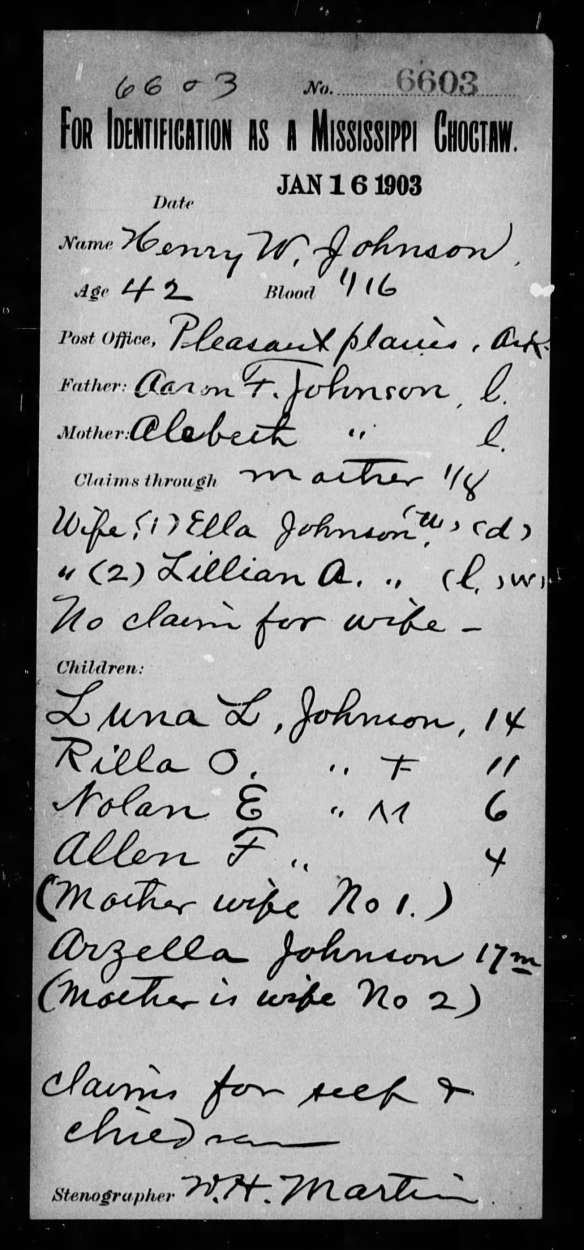 6603 No. 6603
FOR IDENTIFICATION AS A MISSISSIPPI CHOCTAW.
JAN 16 1903
Date
Name Henry W. Johnson.
Age 42 Blood 1/16
Post Office, Pleasant plains, Ark.
Father: Aaron F. Johnson, l.
Mother: Alebeth " l.
Claims through mother 1/8
Wife, (1) Ella Johnson, (w) (d)
" (2) Lillian A. " (l.) w.
No claim for wife -
Children:
Luna L, Johnson, 14
Rilla O. " F 11
Nolan E " M 6
Allen F " 4
(Mother wife No 1.)
Arzella Johnson 17m
(Mother is wife No 2)
claims for self &
children
Stenographer W.H. Martin